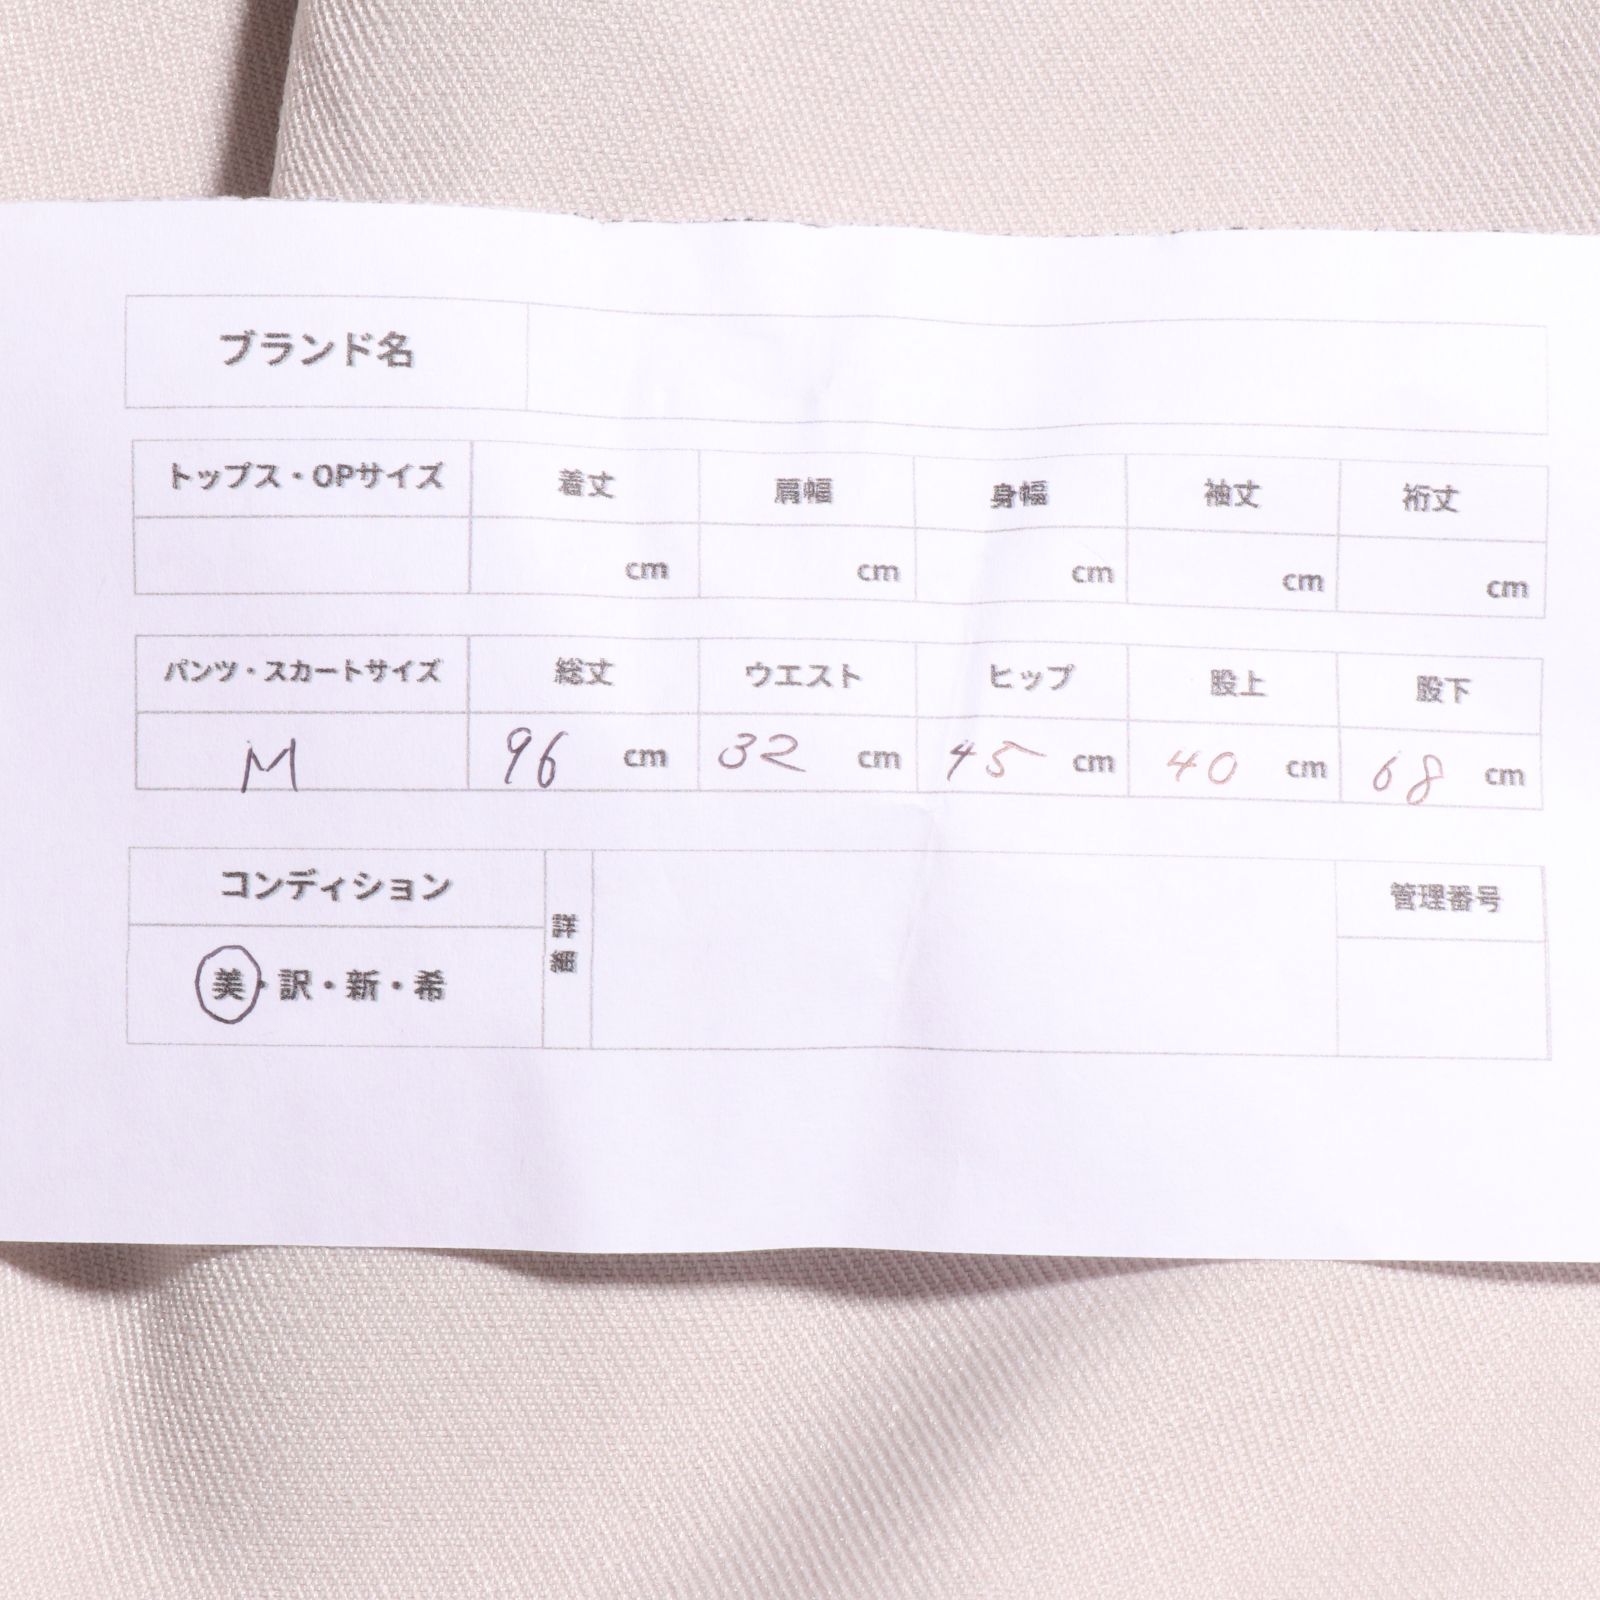 ブランド名
トップス・OPサイズ 着丈 肩幅 身幅 袖丈 裄丈
cm cm cm cm cm
パンツ・スカートサイズ 総丈 ウエスト ヒップ 股上 股下
M 96 cm 32 cm 45 cm 40 cm 68 cm
コンディション 詳細 管理番号
美・訳・新・希